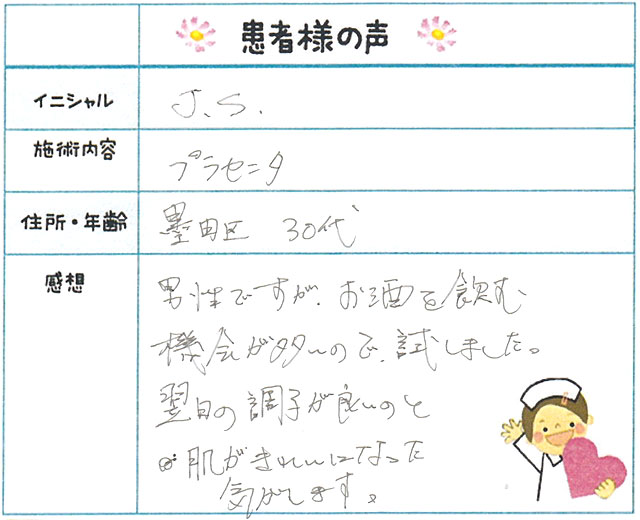 患者様の声
イニシャル J.S.
施術内容 プラセンタ
住所・年齢 墨田区 30代
感想 男性ですが、お酒を飲む
機会が多いので、試しました。
翌日の調子が良いのと
肌がきれいになった
気がします。